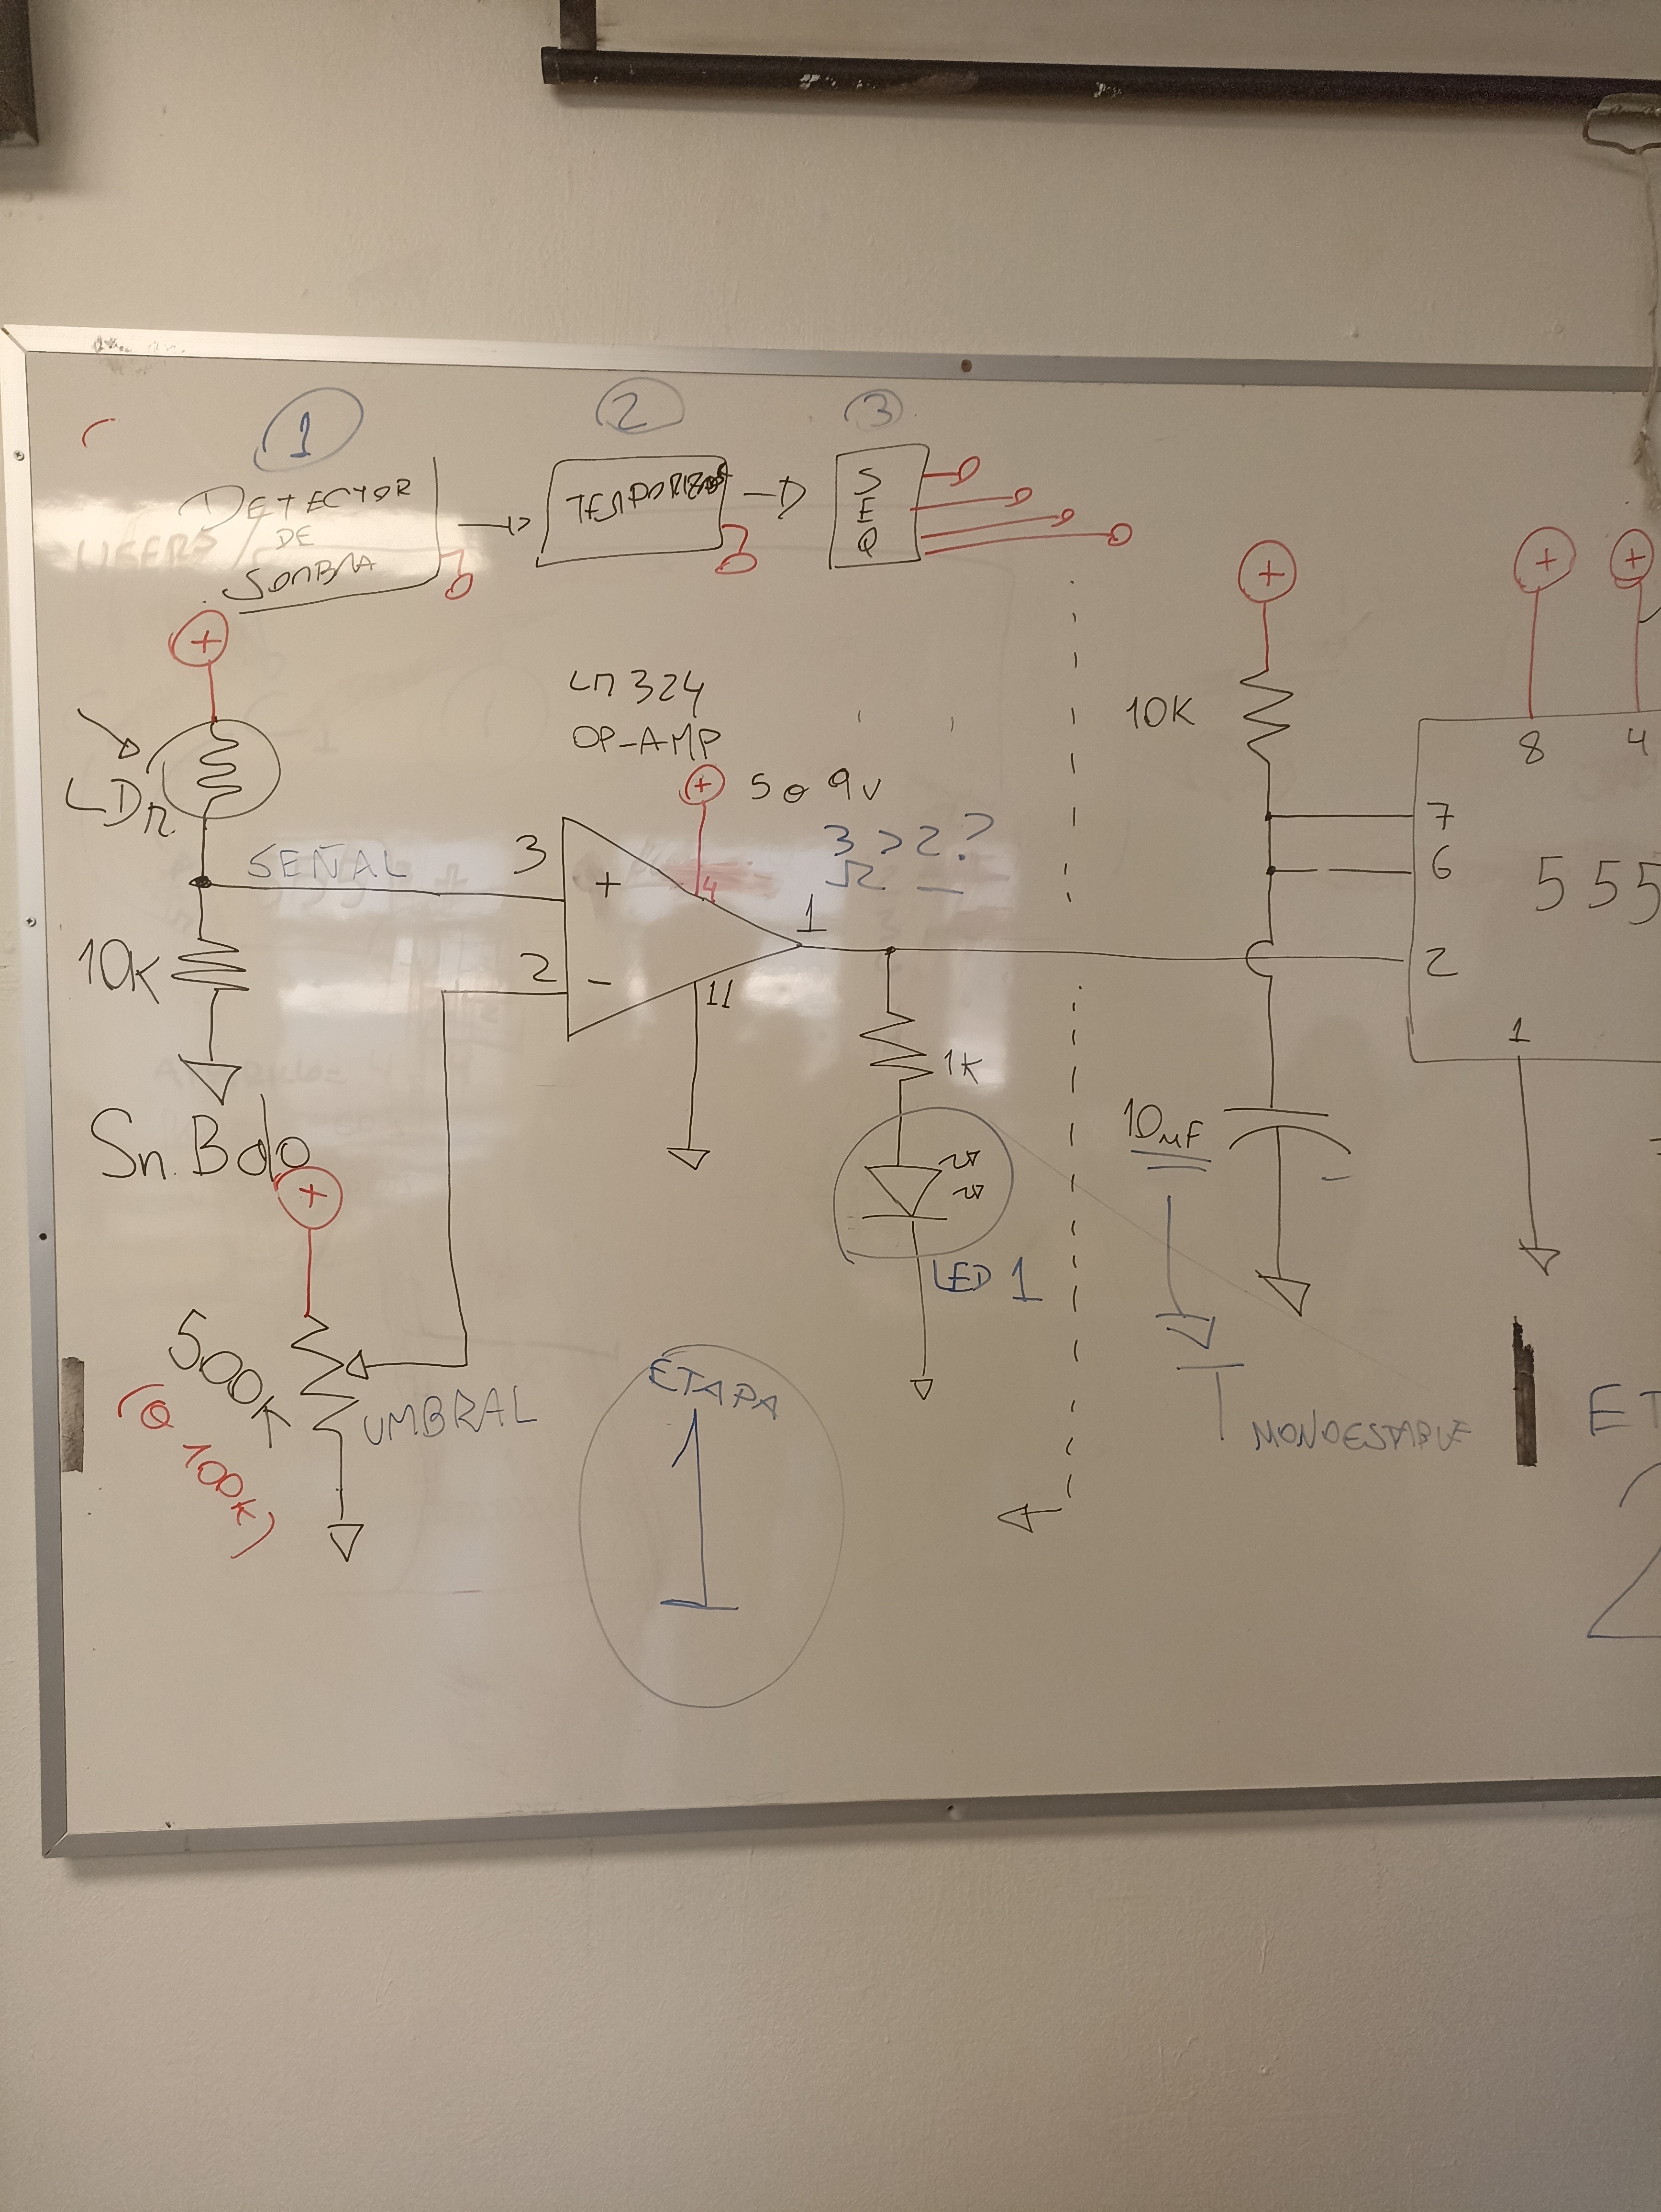 1 2 3
DETECTOR
DE
SOMBRA
TEMPORIZADOR
S
E
Q
+
LDR
SEÑAL
10K
LM 324
OP-AMP
+ 5 o 9v
3 > 2?
3
+
4
1
2
-
11
1K
LED 1
+
500K
(o 100K)
UMBRAL
ETAPA
1
+
10K
10µF
-
T
MONOESTABLE
+ +
8 4
7
6
555
2
1
ET
2